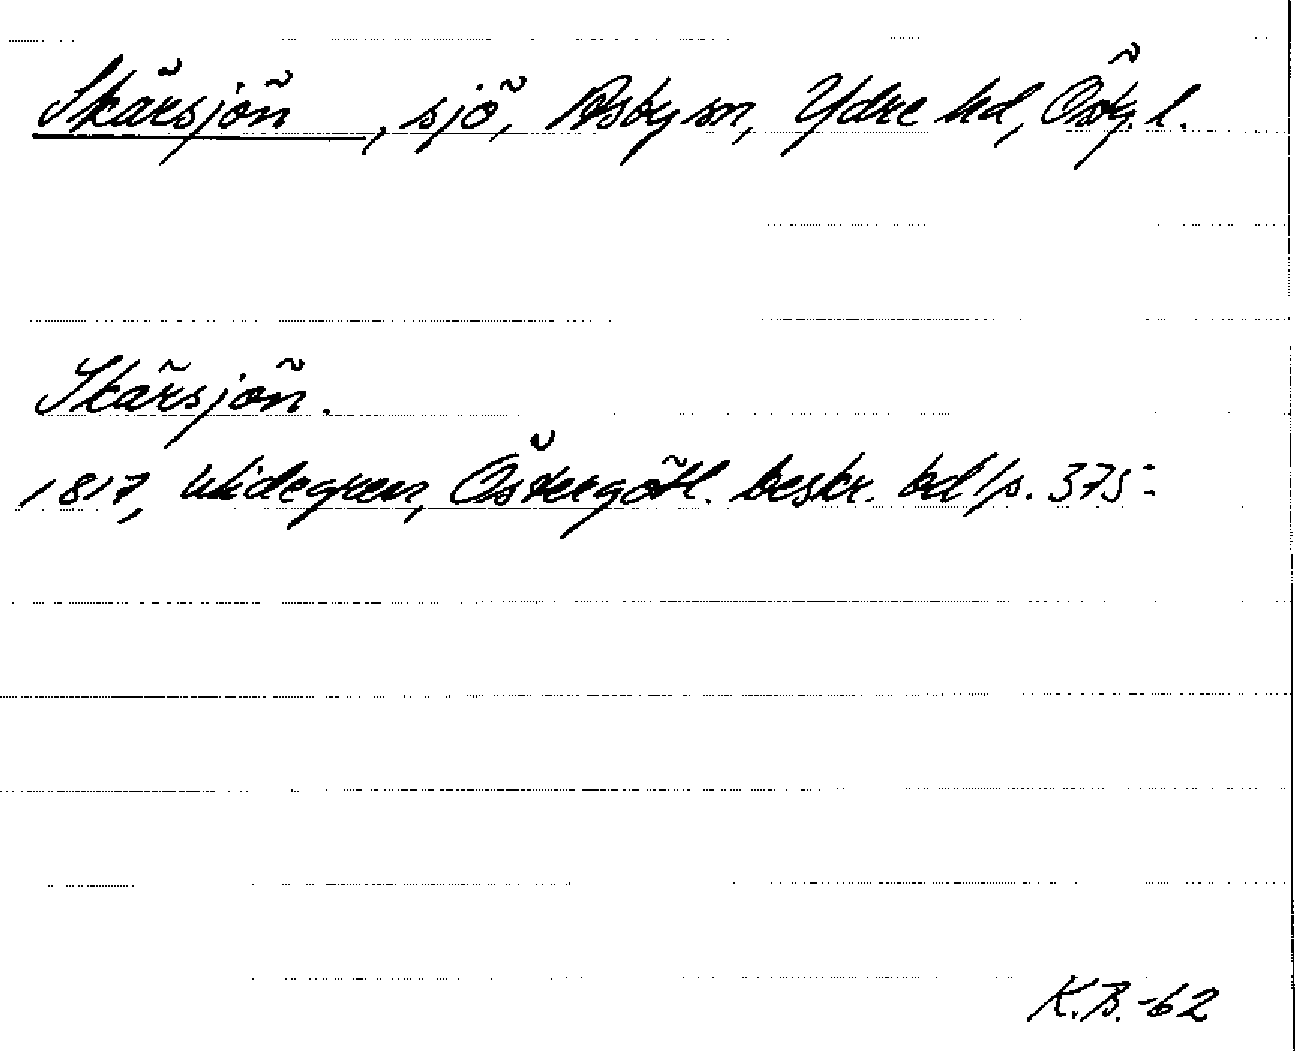 Skärsjön, sjö, Asby sn, Ydre hd, Östg. l.
Skärsjön.
1817, Widegren, Östergötl. beskr. bd 1 p. 375.
K.B. -62